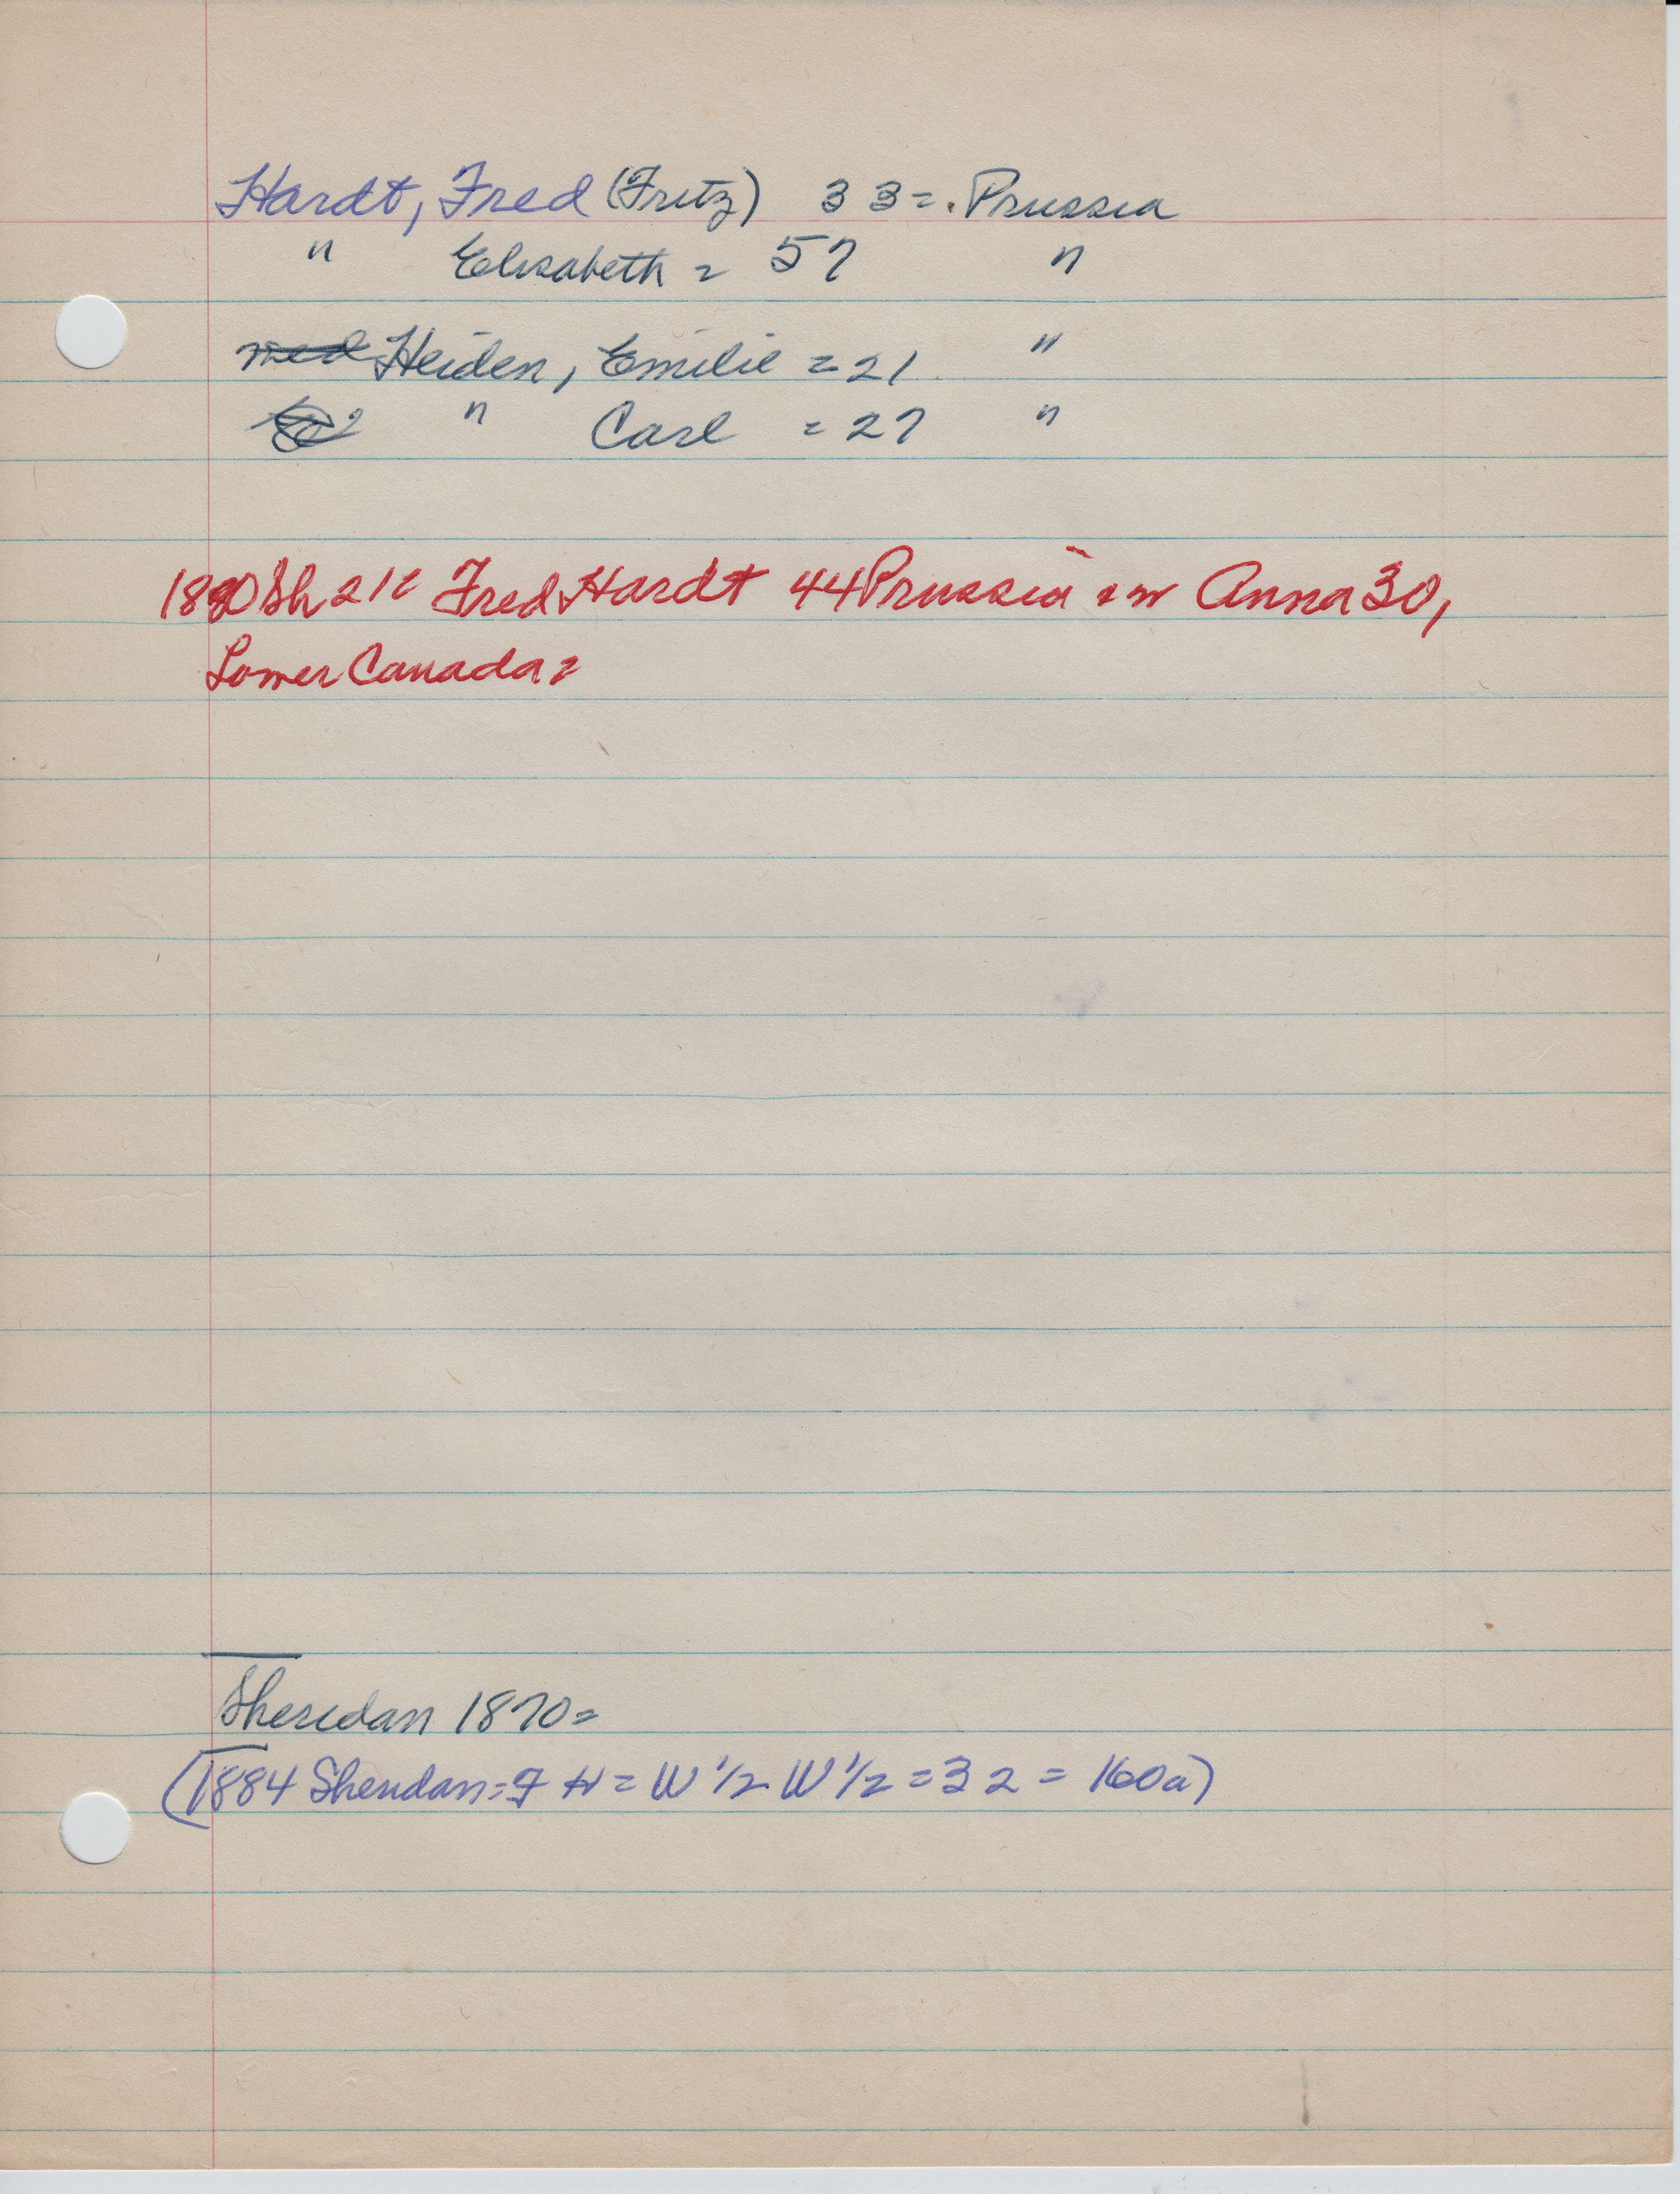 Hardt, Fred (Fritz) 33 = Prussia
" Elisabeth = 57 "
Heiden, Emilie = 21 "
" Carl = 27 "
1880 Sh 21 Fred Hardt 44 Prussia = w Anna 30,
Lower Canada =
Sheridan 1870 =
(1884 Sheridan = F H = W 1/2 W 1/2 = 32 = 160a)